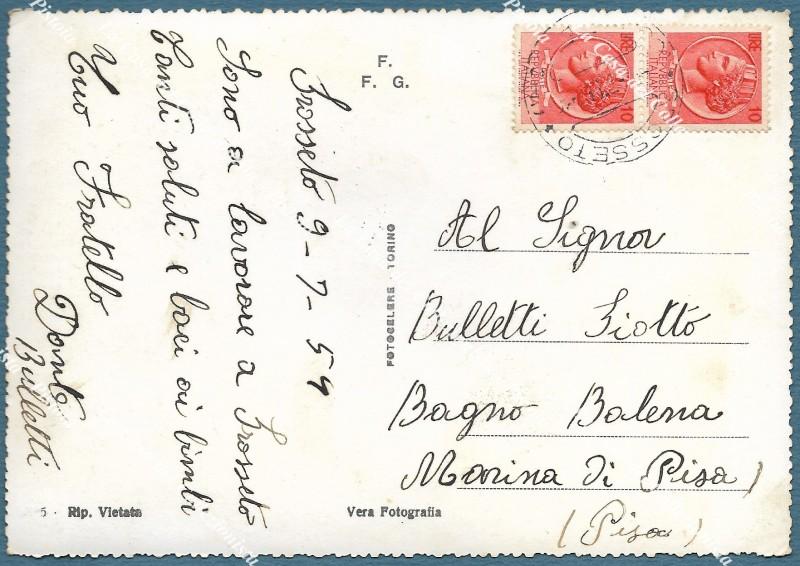 F.
F. G.
Grosseto 9-7-54
Sono a lavorare a Grosseto
Tanti saluti e baci ai bimbi
Tuo Fratello
Dante
Bulletti
FOTOCELERE TORINO
5 - Rip. Vietata
Vera Fotografia
LIRE 10
REPUBBLICA ITALIANA
LIRE 10
REPUBBLICA ITALIANA
GROSSETO
Al Signor
Bulletti Giotto
Bagno Balena
Marina di Pisa)
(Pisa)